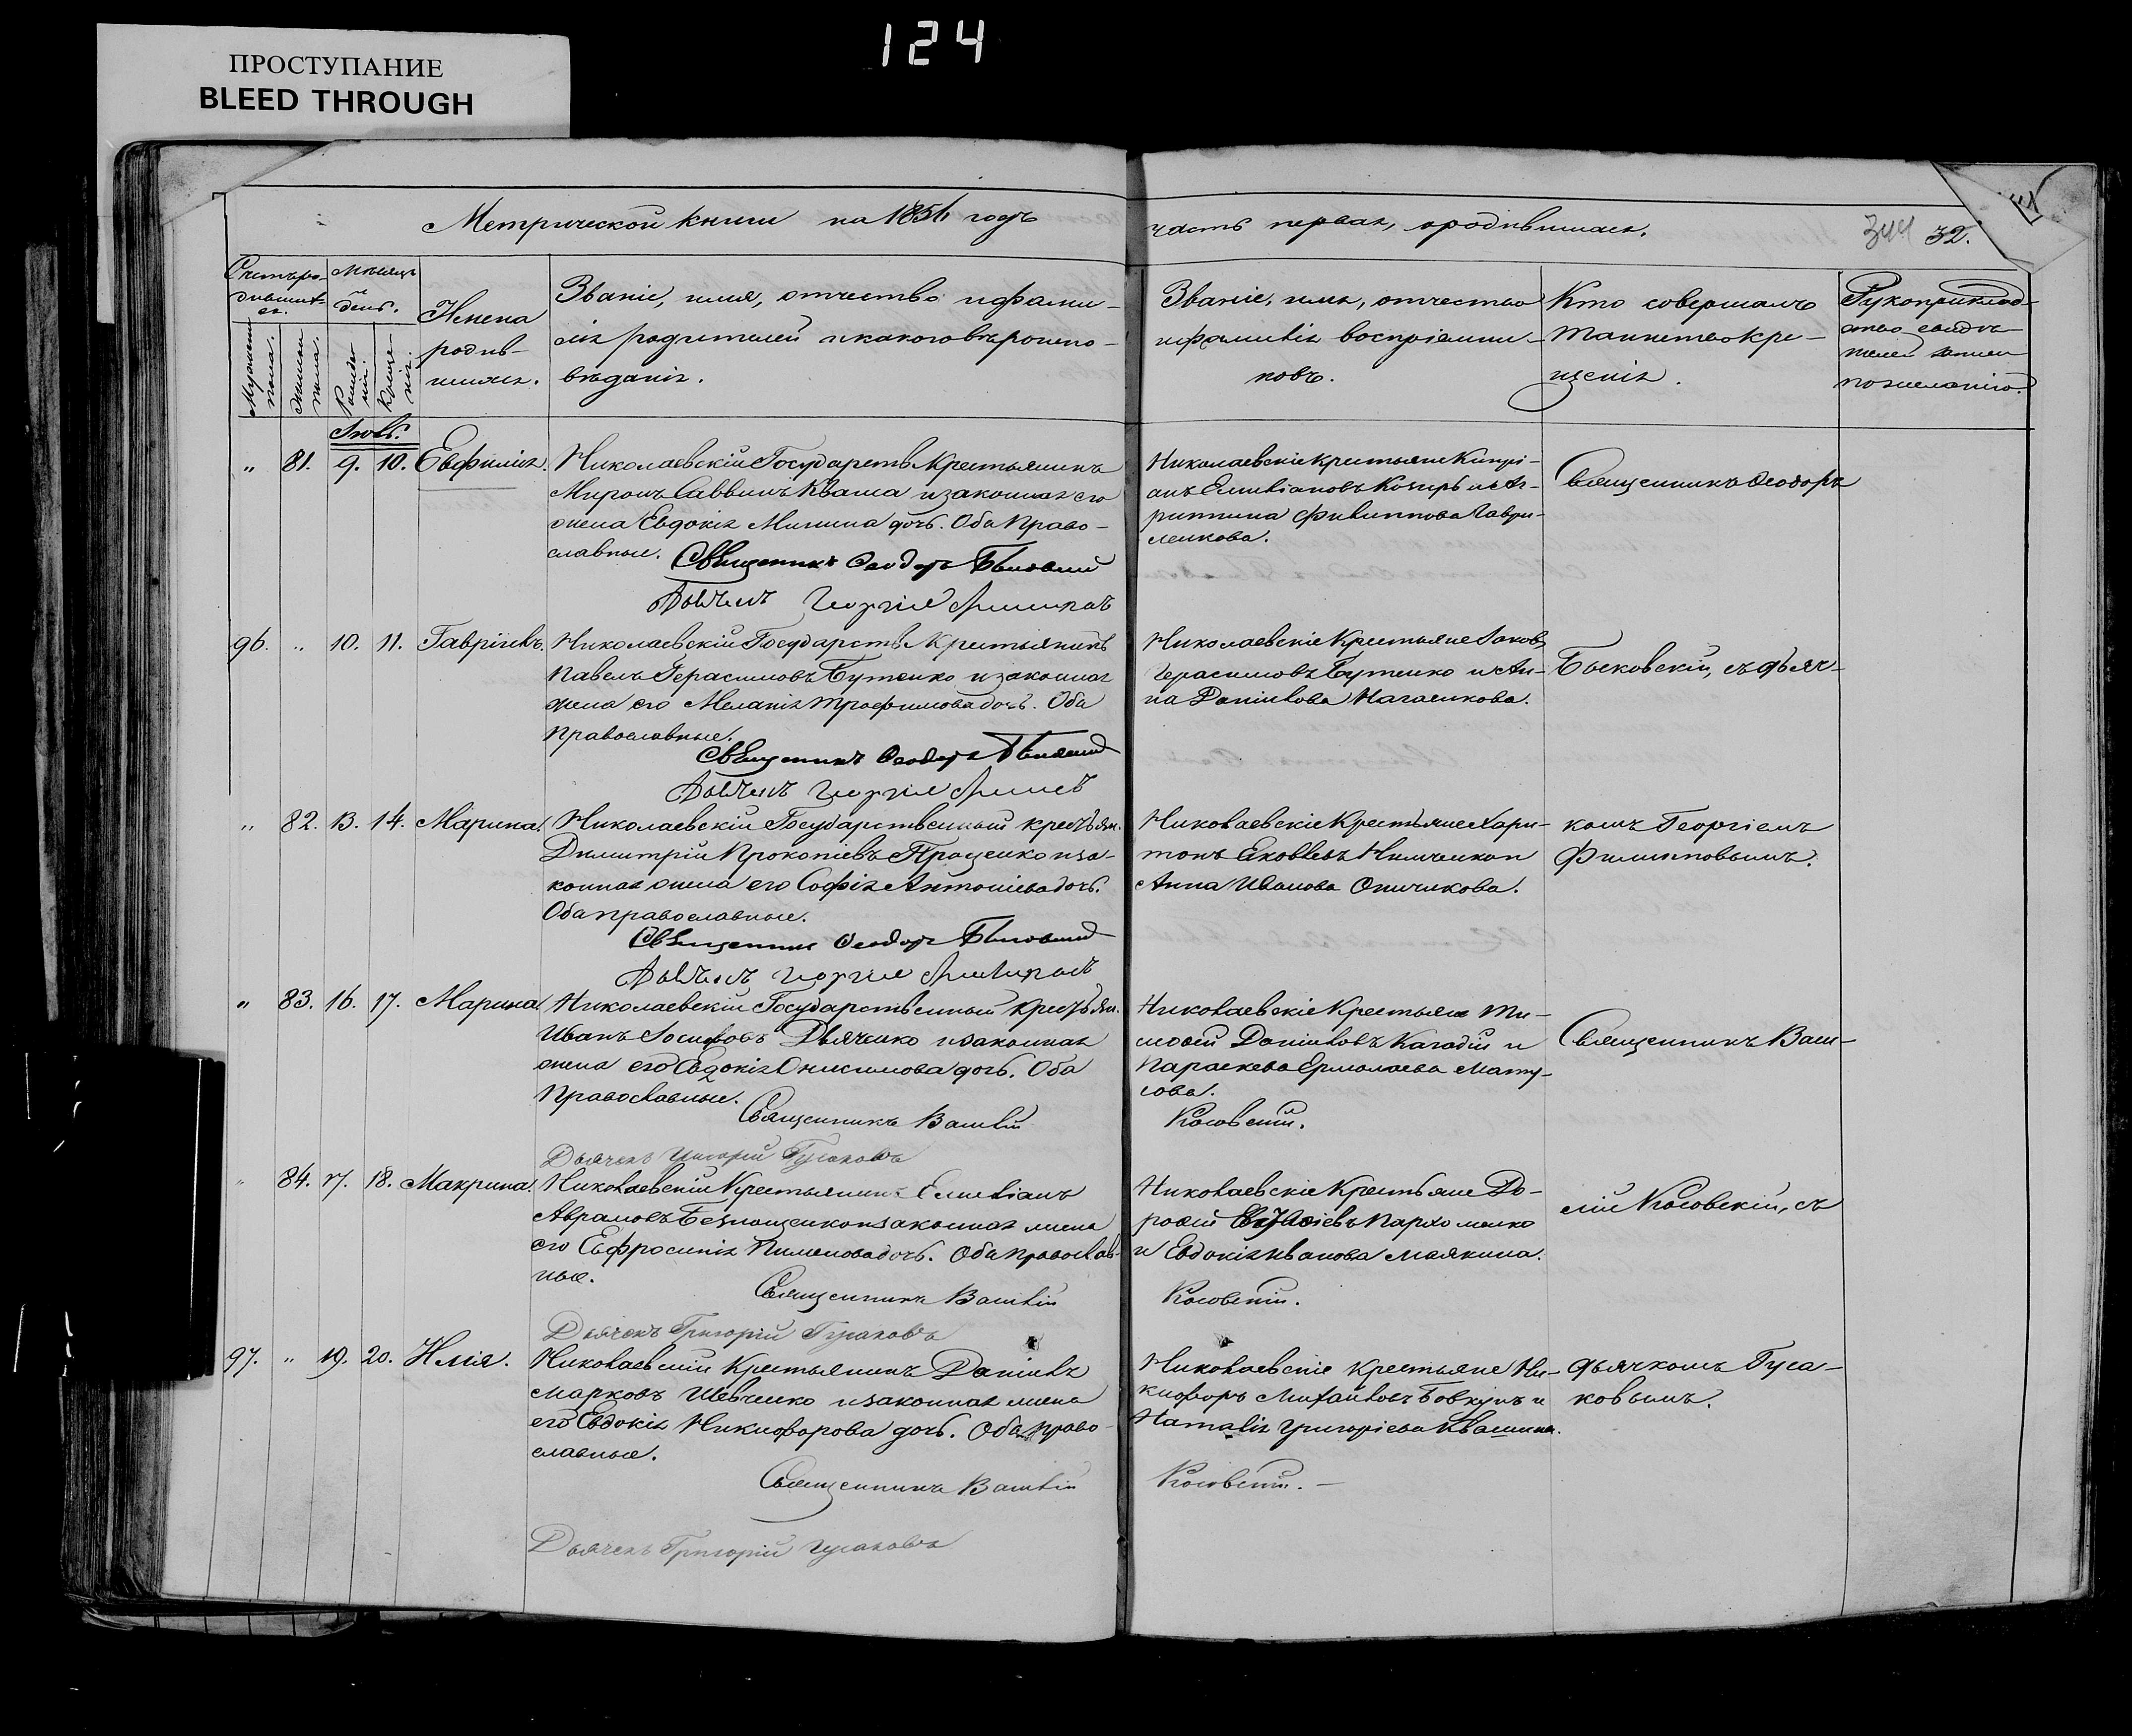 124
ПРОСТУПАНИЕ
BLEED THROUGH
Метрической книги на 1856 годъ
часть первая, о родившихся.
344 32.
Мѣсяцъ
и
день.
Имена
родив-
шихся.
Званіе, имя, отчество и фами-
лія родителей и какого вѣроиспо-
вѣданія.
Званіе, имя, отчество
и фамилія воспріемни-
ковъ.
Кто совершалъ
таинство кре-
щенія.
Рукоприклад-
ство свидѣ-
телей записи
по желанію.
Мужеска
пола.
Женска
пола.
Рожде-
нія.
Креще-
нія.
„ 81. 9. 10. Евфимія.
Николаевскій Государств. Крестьянинъ
Миронъ Саввинъ Кваша и законная его
жена Евдокія Минина дочь. Оба Право-
славные.
Священникъ Феодоръ
Николаевскіе крестьяне Кипрі-
анъ Емиліановъ Козырь и Аг-
риппина Филиппова Гаври-
ленкова.
Священникъ Феодоръ
96. „ 10. 11. Гавріилъ.
Николаевскій Государств. Крестьянинъ
Павелъ Герасимовъ Бутенко и законная
жена его Меланія Трофимова дочь. Оба
Православные.
Священникъ Феодоръ
Николаевскіе Крестьяне Іаковъ
Герасимовъ Бутенко и Ан-
на Даніилова Нагаенкова.
съ дьяч-
„ 82. 13. 14. Марина.
Николаевскій Государственный крестьян.
Димитрій Прокопіевъ Проценко и за-
конная жена его Софія Антоніева дочь.
Оба православные.
Священникъ Феодоръ
Николаевскіе Крестьяне Хари-
тонъ Яковлевъ Нимченко и
Анна Иванова Оничикова.
комъ Георгіемъ
Филипповымъ.
„ 83. 16. 17. Марина.
Николаевскій Государственный крестьян.
Иванъ Іосифовъ Дьяченко и законная
жена его Евдокія Онисимова дочь. Оба
Православные.
Священникъ Василій
Дьячекъ Григорій Гусаковъ
Николаевскіе Крестьяне Ти-
мофей Даніиловъ Кагадій и
Параскева Ермолаева Мату-
сова.
Косовскій.
Священникъ Васи-
84. 17. 18. Макрина.
Николаевскій Крестьянинъ Емиліанъ
Аврамовъ Безнощенко и законная жена
его Евфросинія Пименова дочь. Оба православ-
ные.
Священникъ Василій
Дьячекъ Григорій Гусаковъ
Николаевскіе Крестьяне До-
рофей Пархоменко
и Евдокія Иванова Маякина.
Косовскій.
лій Косовскій, съ
97. „ 19. 20. Илія.
Николаевскій Крестьянинъ Даніилъ
Марковъ Шевченко и законная жена
его Евдокія Никифорова дочь. Оба право-
славные.
Священникъ Василій
Дьячекъ Григорій Гусаковъ
Николаевскіе крестьяне Ни-
кифоръ Михайловъ Бовкунъ и
Наталія Григоріева Квашина.
Косовскій.
дьячкомъ Гуса-
ковымъ.